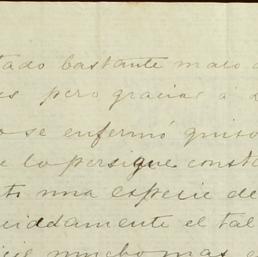 tado bastante malo
es pero gracias a
o se enfermó quiso
e lo persigue consta
ti una especie de
uiddamente el tal
muchomas